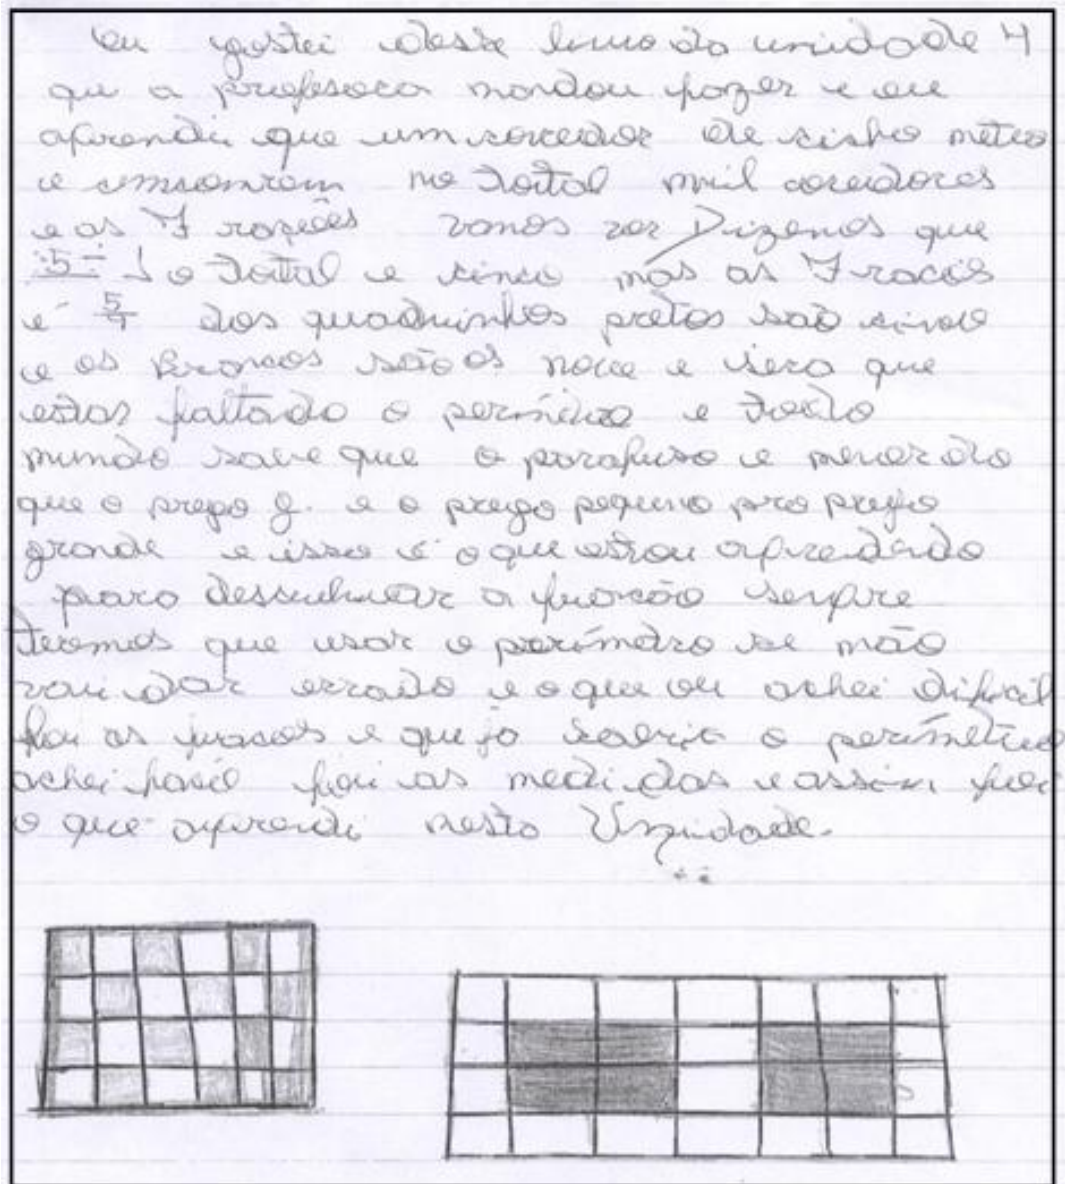 Eu gostei desse livro da unidade 4
que a profesora mandou fazer e eu
aprendi que um corredor de sinho metro
e no total mil coredores
e as 7 vamos ver Dizemos que
5 o total e sinco mas as 7
e 5 dos quadrinhos pretos são sinco
e os Brancos são os nove e sera que
estar faltado o e todo
mundo save que o parafuso e menor do
que o prego g. e o prego pequeno pro prego
grande e isso é o que estou aprededo
para a sempre
teremos que usar o perímetro se não
vai dar errado e o que eu achei dificil
foi as e que ja o perímetro
achei facil foi as medidas e assim foi
o que aprendi nesta Unidade.